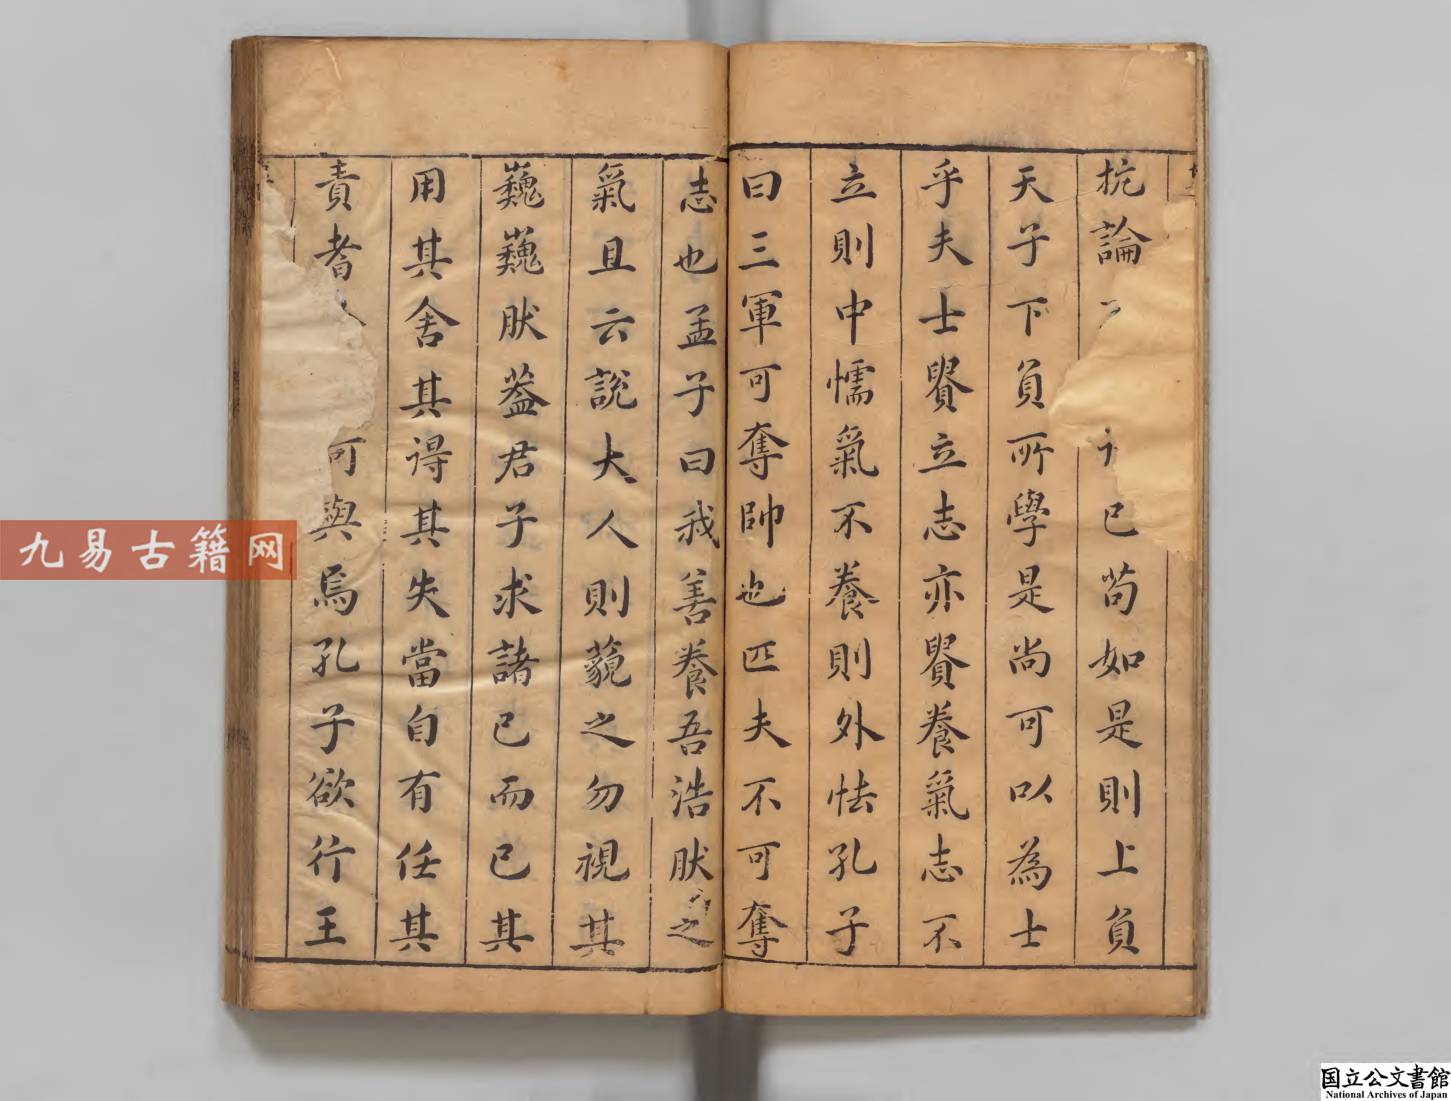 抗論已苟如是則上負
天子下負所學是尚可以為士
乎夫士貴立志亦貴養氣志不
立則中懦氣不養則外怯孔子
曰三軍可奪帥也匹夫不可奪
志也孟子曰我善養吾浩肰之
氣且云說大人則藐之勿視其
巍巍肰葢君子求諸已而已其
用其舍其得其失當自有任其
責者可與焉孔子欲行王
九易古籍网
国立公文書館
National Archives of Japan